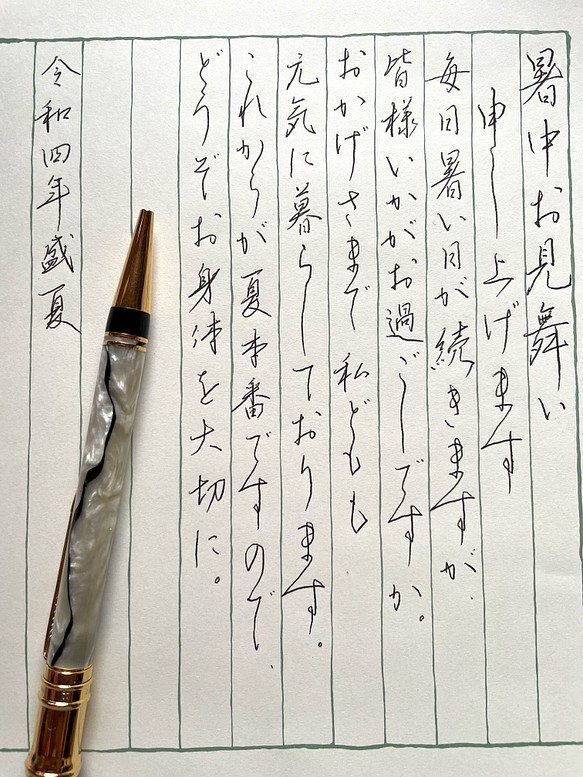 暑中お見舞い
申し上げます
毎日暑い日が続きますが、
皆様いかがお過ごしですか。
おかげさまで私どもも、
元気に暮らしております。
これからが夏本番ですので、
どうぞお身体を大切に。
令和四年盛夏